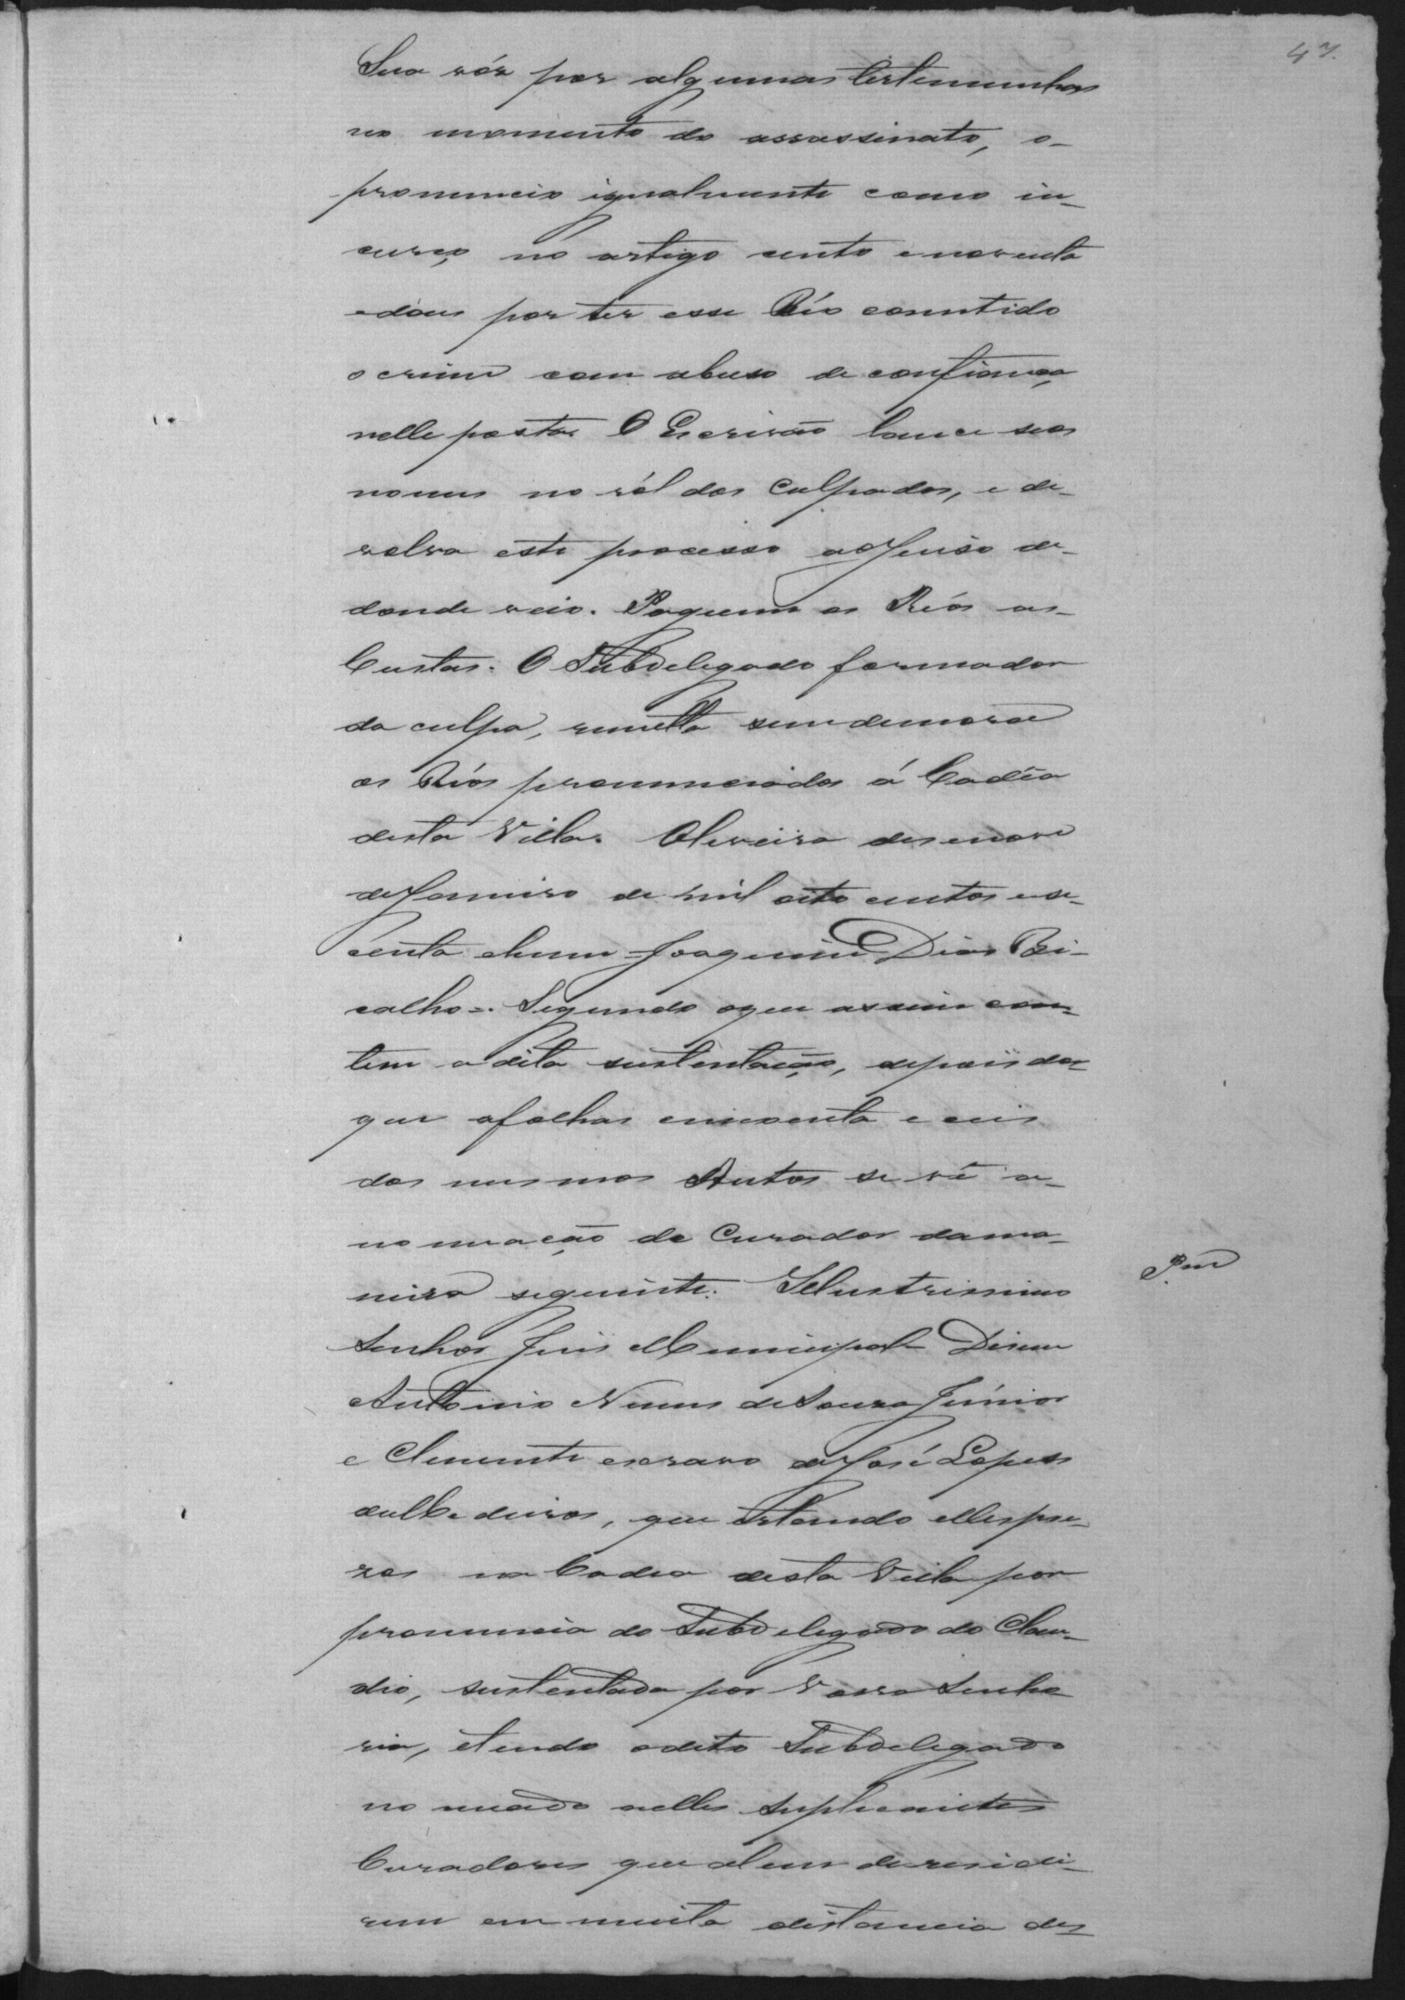 47.
Sua vóz por algumas testemunhas
no momento do assassinato, o-
pronuncio igualmente como in-
curço no artigo cento e noventa
e dous por ter esse Réo comettido
o crime com abuso de confiança
nelle posta. O Escrivão lance seos
nomes no ról dos culpados, e de-
volva este processo ao Juiso de-
donde veio. Paguem os Réos as-
Custas. O Subdelegado formador
da culpa, remetta sem demora
os Réos pronunciados á Cadêa
desta Villa. Oliveira desenove
de Janeiro de mil oito centos e se-
centa e hum = Joaquim Dias Bi-
calho =. Segundo o que assim con-
tem a dita sustentação, depois do-
que a folhas cincoenta e ceis
dos mesmos Autos se vê a-
nomeação de Curador da ma-
neira seguinte: Illustrissimo
Senhor Juis Municipal - Disem
Antonio Nunes de Souza Júnior
e Clemente escravo de José Lopes
de Medeiros, que estando elles pre-
zos na Cadea desta Villa por
pronuncia do Subdelegado do Clau-
dio, sustentada por Vossa Senho
ria, e tendo o dito Subdelegado
nomeado a elles Suplicantes
Curadores que alem de residi-
rem em muita distancia des-